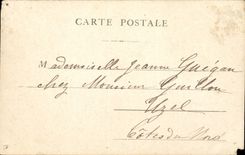 CARTE POSTALE
Mademoiselle Jeanne Guégan
chez Monsieur Guillou
Uzel
Côtes du Nord